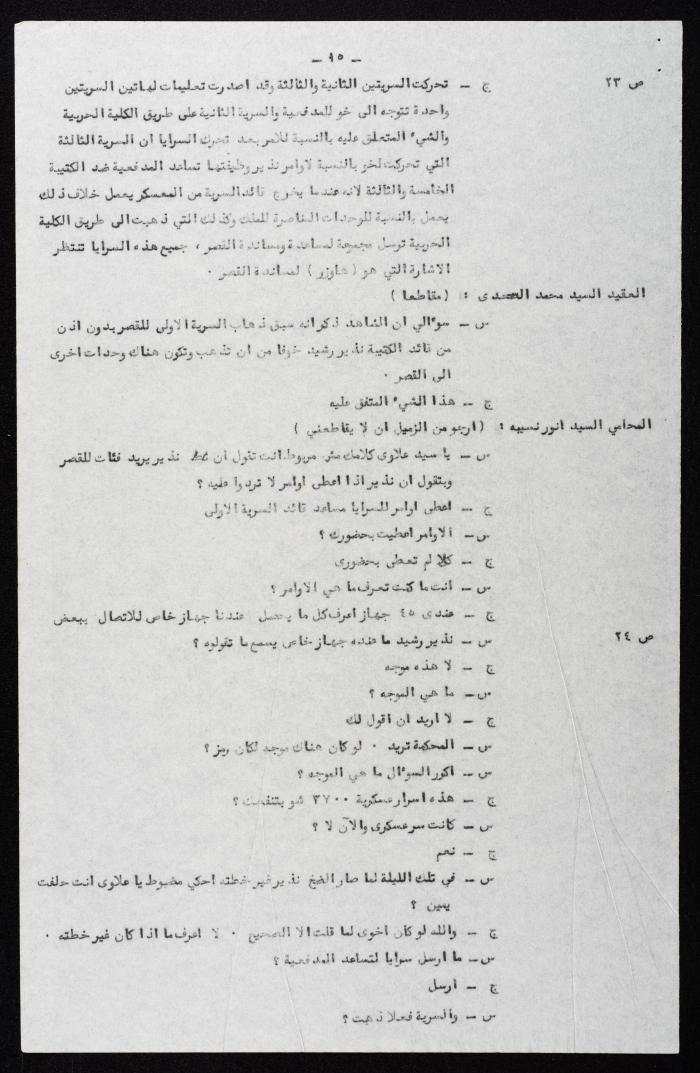 - ١٥ -
ص ٢٣ ج - تحركت السريتين الثانية والثالثة وقد اصدرت تعليمات لهاتين السريتين
واحدة تتوجه الى خو للمدفعية والسرية الثانية على طريق الكلية الحربية
والشيء المتعلق عليه بالنسبة للامر بعد تحرك السرايا ان السرية الثالثة
التي تحركت لخو بالنسبة لاوامر نذير وظيفتها تساعد المدفعية ضد الكتيبة
الخامسة والثالثة لانه عندما يخرج قائد السرية من المعسكر يعمل خلاف ذلك
يعمل بالنسبة للوحدات المناصرة للملك وكذلك التي ذهبت الى طريق الكلية
الحربية ترسل مجموعة لمساعدة ومساندة القصر ، جميع هذه السرايا تنتظر
الاشارة التي هو ( هاوزر ) لمساندة القصر .
العقيد السيد محمد السعدى : ( مقاطعا )
س - سوءالي ان الشاهد ذكر انه سبق ذهاب السرية الاولى للقصر بدون اذن
من قائد الكتيبة نذير رشيد خوفا من ان تذهب وتكون هناك وحدات اخرى
الى القصر .
ج - هذا الشيء المتفق عليه
المحامي السيد انور نسيبه : ( ارجو من الزميل ان لا يقاطعني )
س - يا سيد علاوى كلامك مش مربوط انت تقول ان نذير يريد فئات للقصر
وبتقول ان نذير اذا اعطى اوامر لا تردوا عليه ؟
ج - اعطى اوامر للسرايا مساعد قائد السرية الاولى
س - الاوامر اعطيت بحضورك ؟
ج - كلا لم تعطى بحضورى
س - انت ما كنت تعرف ما هي الاوامر ؟
ج - عندى ٤٥ جهاز اعرف كل ما يحصل عندنا جهاز خاص للاتصال ببعض
ص ٢٤ س - نذير رشيد ما عنده جهاز خاص يسمع ما تقولوه ؟
ج - لا هذه موجه
س - ما هي الموجه ؟
ج - لا اريد ان اقول لك
س - المحكمة تريد . لو كان هناك موجه لكان رمز ؟
س - اكرر السوءال ما هي الموجه ؟
ج - هذه اسرار عسكرية ٣٧٠٠ شو بتنفعك ؟
س - كانت سر عسكرى والآن لا ؟
ج - نعم
س - في تلك الليلة لما صار الضخ نذير غير خطته احكي مضبوط يا علاوى انت حلفت
يمين ؟
ج - والله لو كان اخوى لما قلت الا الصحيح . لا اعرف ما اذا كان غير خطته .
س - ما ارسل سرايا لتساعد المدفعية ؟
ج - ارسل
س - والسرية فعلا ذهبت ؟